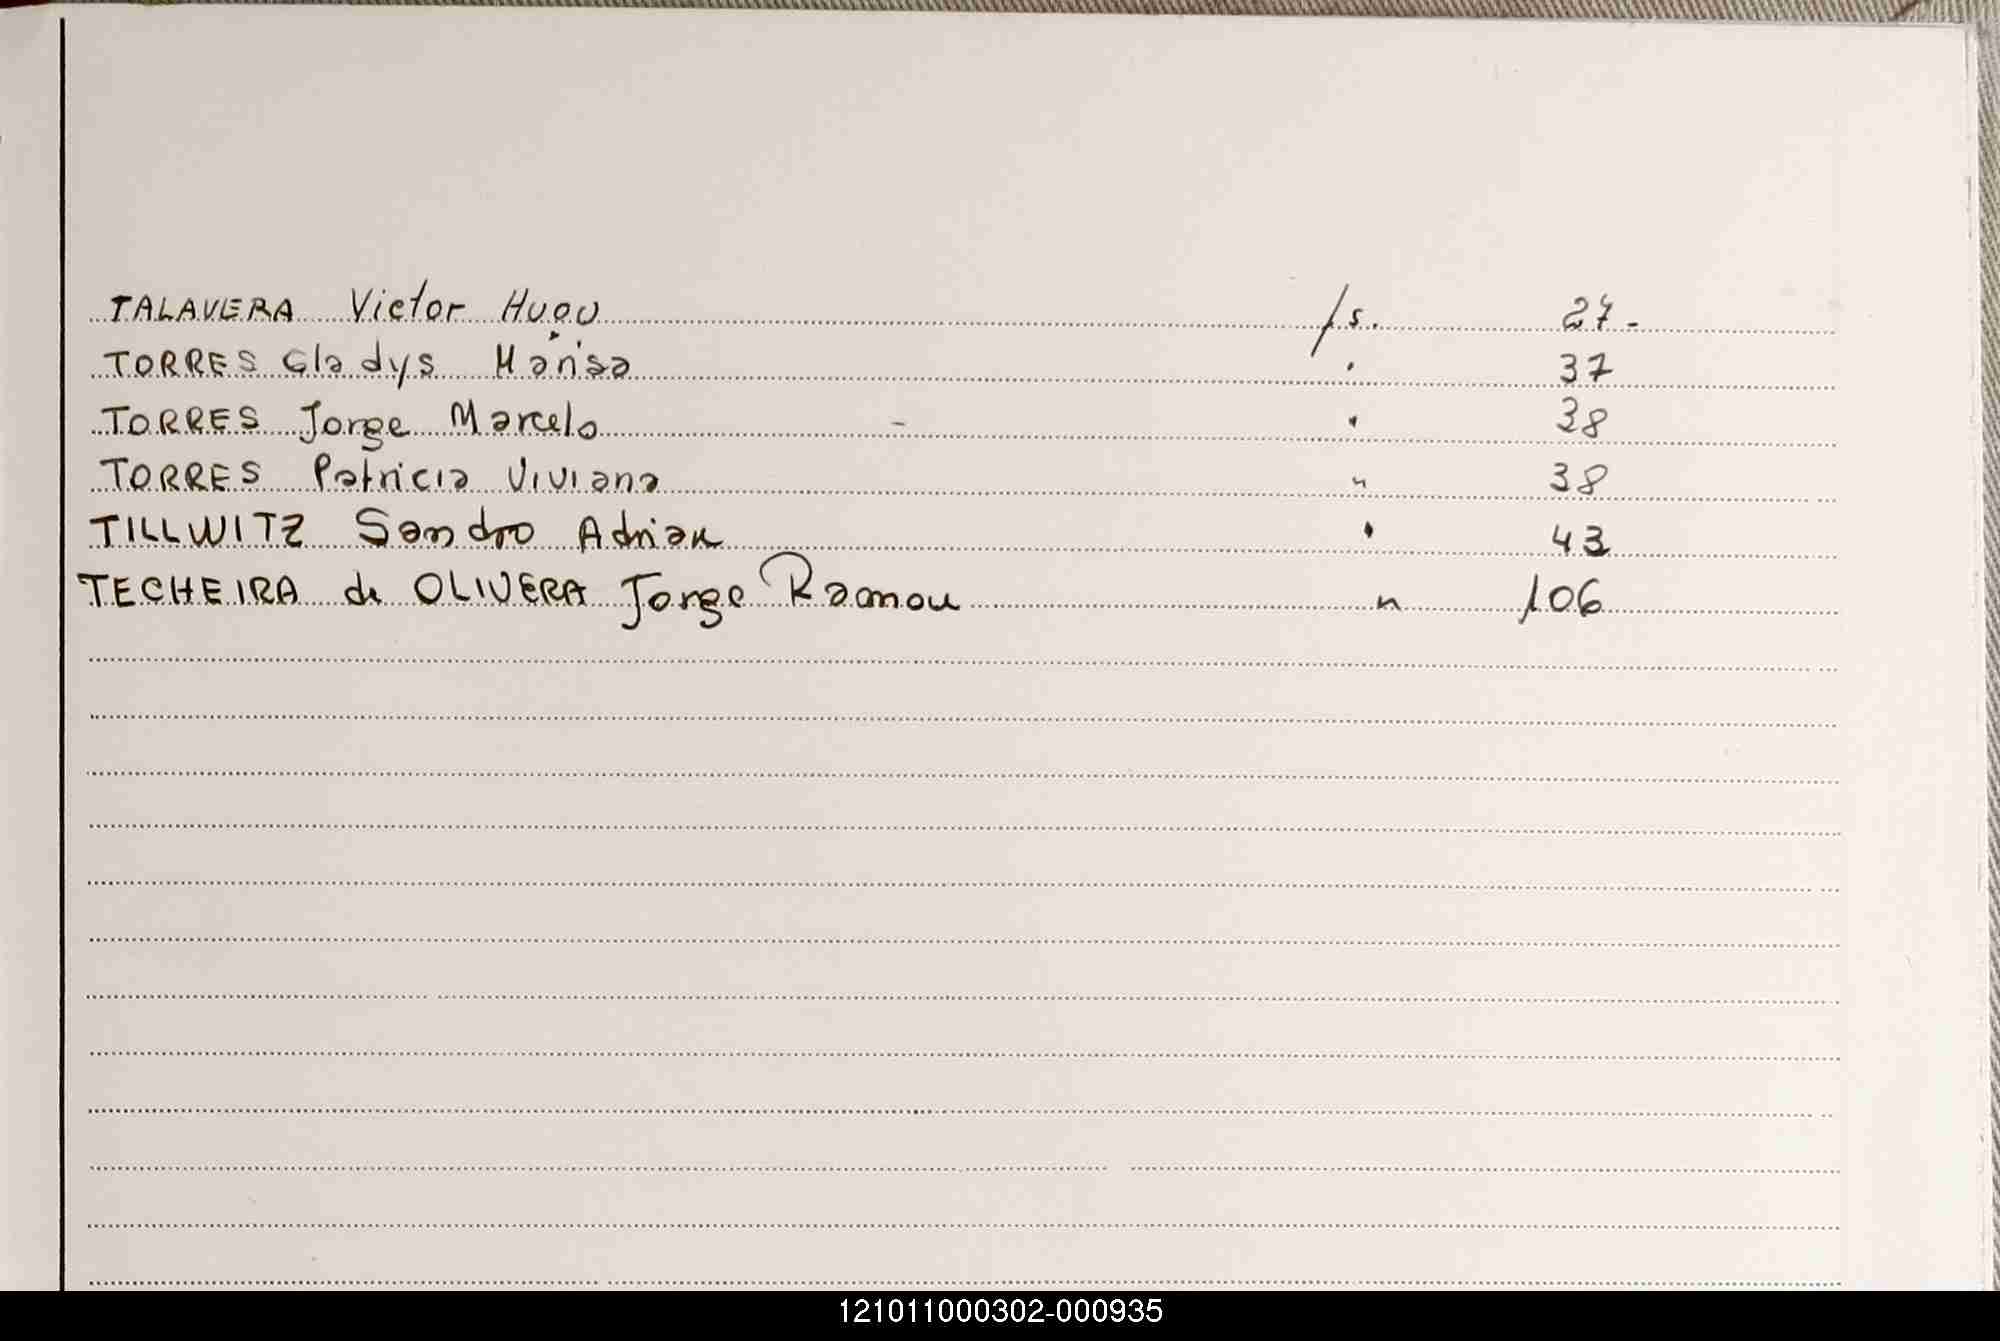 TALAVERA Victor Hugo fs. 27-
TORRES Gladys Marisa " 37
TORRES Jorge Marcelo - " 38
TORRES Patricia Viviana " 38
TILLWITZ Sandro Adrian " 43
TECHEIRA de OLIVERA Jorge Ramon " 106
121011000302-000935